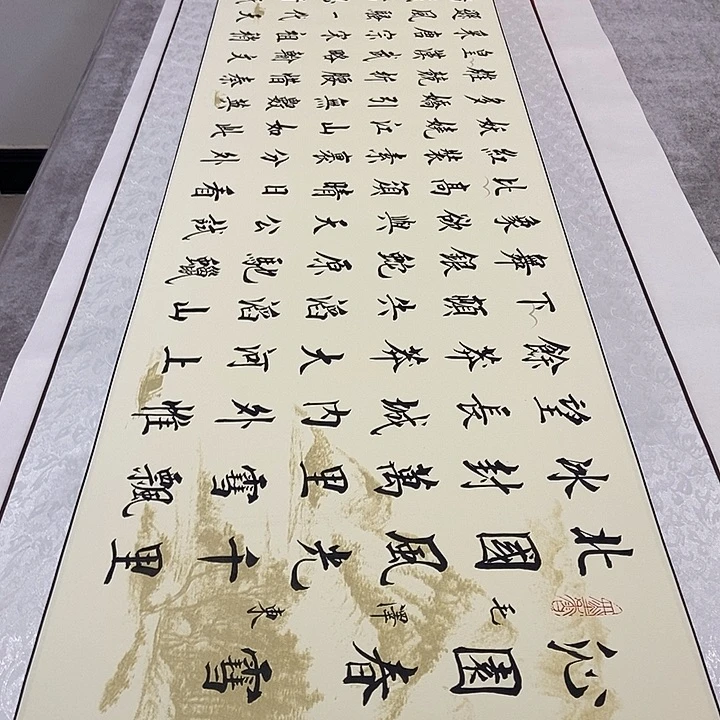 沁園春雪
毛澤東
北國風光千里
冰封萬里雪飄
望長城內外惟
餘莽莽大河上
下頓失滔滔山
舞銀蛇原馳蠟
象欲與天公試
比高須晴日看
紅裝素裹分外
妖嬈江山如此
多嬌引無數英
雄競折腰惜秦
皇漢武略輸文
采唐宗宋祖稍
遜風騷一代天